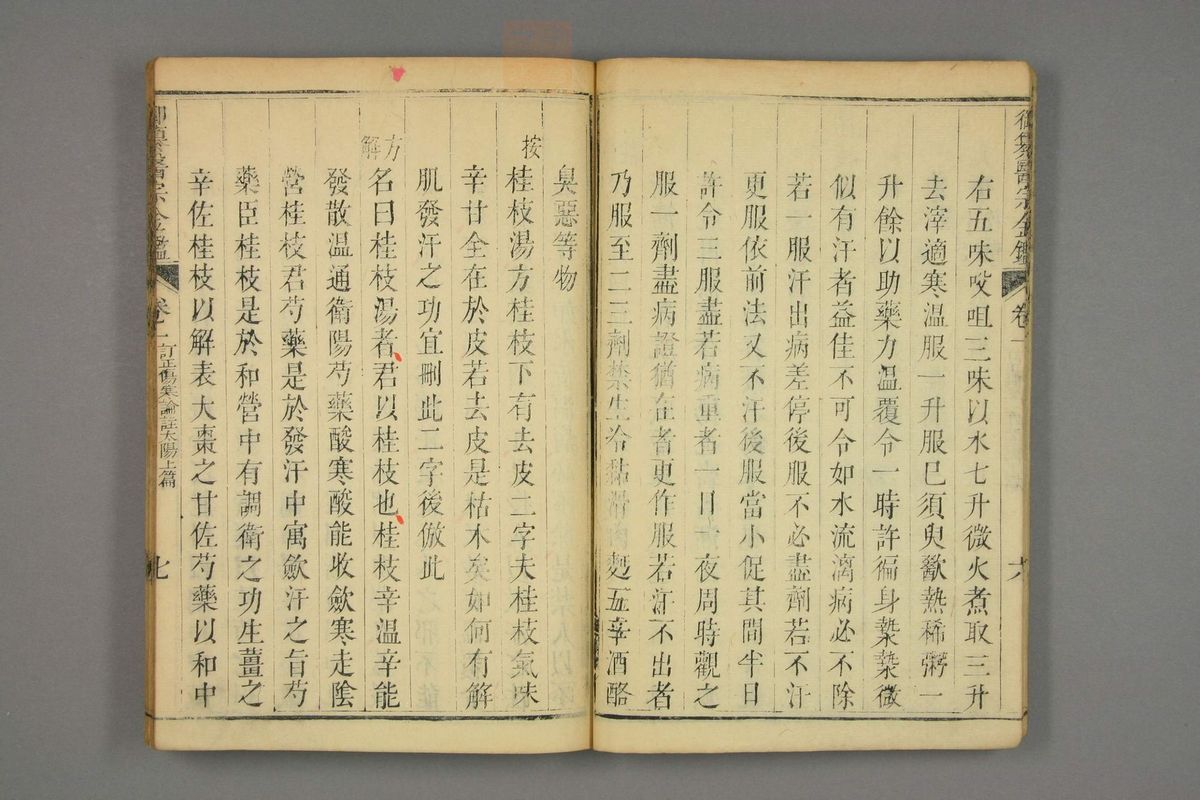 右五味㕮咀三味以水七升微火煮取三升
去滓適寒温服一升服已須臾歠熱稀粥一
升餘以助藥力溫覆令一時許徧身漐漐微
似有汗者益佳不可令如水流漓病必不除
若一服汗出病差停後服不必盡劑若不汗
更服依前法又不汗後服當小促其間半日
許令三服盡若病重者一日一夜周時觀之
服一劑盡病證猶在者更作服若汗不出者
乃服至二三劑禁生冷黏滑肉麪五辛酒酪
臭惡等物
按
桂枝湯方桂枝下有去皮二字夫桂枝氣味
辛甘全在於皮若去皮是枯木矣如何有解
肌發汗之功宜刪此二字後倣此
方解
名曰桂枝湯者君以桂枝也桂枝辛溫辛能
發散温通衛陽芍藥酸寒酸能收斂寒走陰
營桂枝君芍藥是於發汗中寓斂汗之旨芍
藥臣桂枝是於和營中有調衛之功生薑之
辛佐桂枝以解表大棗之甘佐芍藥以和中
卷一
訂正傷寒論註太陽上篇